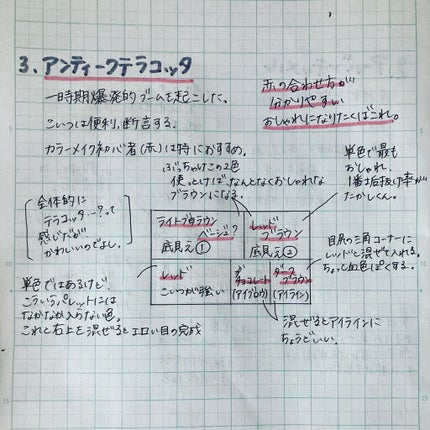 3. アンティークテラコッタ
一時期爆発的ブームを起こした。
こいつは便利。断言する。
カラーメイク初心者(赤)は特におすすめ。
赤の合わせ方が
分かりやすい
おしゃれになりたくばこれ。
ぶっちゃけこの2色
使っとけばなんとなくおしゃれな
ブラウンになる
単色で最も
おしゃれ。
1番
率が
たかしくん。
全体的に
テラコッタ…?って
感じだが
かわいいのでよし。
ライトブラウン
ベージュ?
底見え①
レッド
ブラウン
底見え②
目尻の三角コーナーに
レッドと混ぜて入れる。
ちょっと血色ぽくする。
レッド
こいつが強い
チョコレート
(アイブロウ)
ダーク
ブラウン
(アイライン)
単色ではあるけど、
こういうパレットには
なかなか入らない色。
これと右上を混ぜるとエロい目の完成
混ぜるとアイラインに
ちょうどいい。